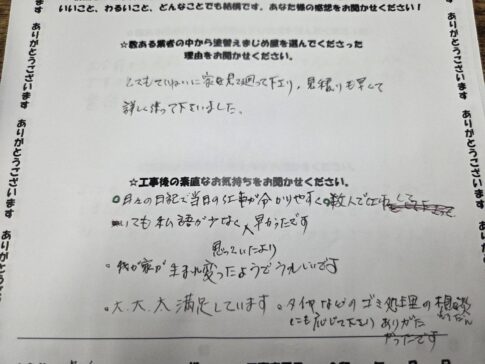 いいこと、わるいこと、どんなことでも結構です。あなた様の感想をお聞かせください！
☆数ある業者の中から塗替えまじめ屋を選んでくださった
理由をお聞かせください。
とてもていねいに家を見て廻って下さり、見積りも早くて
詳しく作って下さいました。
☆工事後の素直なお気持ちをお聞かせください。
日々の日記で当日の仕事が分かりやすく 数人で仕事
いても私語が少なく、早かったです
思っていたより
我が家が生まれ変ったようでうれしいです
大、大、大満足しています
タイヤなどのゴミ処理の相談
にも応じて下さり ありがた
かったです
ありがとうございます ありがとうございます ありがとうございます
ありがとうございます ありがとうございます ありがとうございます